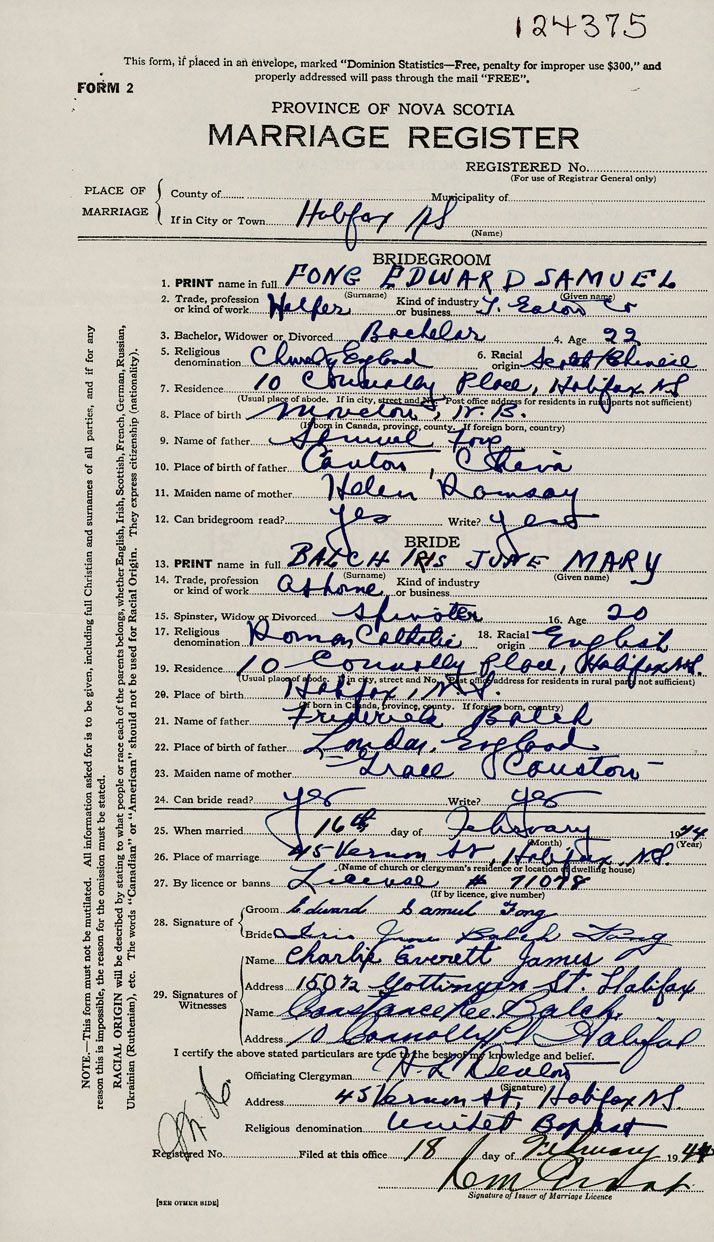 124375
This form, if placed in an envelope, marked "Dominion Statistics—Free, penalty for improper use $300," and
properly addressed will pass through the mail "FREE".
FORM 2
PROVINCE OF NOVA SCOTIA
MARRIAGE REGISTER
REGISTERED No.
(For use of Registrar General only)
PLACE OF MARRIAGE
County of Municipality of
If in City or Town Halifax NS
(Name)
BRIDEGROOM
1. PRINT name in full FONG EDWARD SAMUEL
(Surname) (Given name)
2. Trade, profession or kind of work Helper Kind of industry or business T. Eaton Co
3. Bachelor, Widower or Divorced Bachelor 4. Age 22
5. Religious denomination Church England 6. Racial origin Scotch Chinese
7. Residence 10 Connolly Place, Halifax NS
(Usual place of abode. If in city, street and No. Post office address for residents in rural parts not sufficient)
8. Place of birth Moncton, N.B.
(If born in Canada, province, county. If foreign born, country)
9. Name of father Samuel Fong
10. Place of birth of father Canton, China
11. Maiden name of mother Helen Ramsay
12. Can bridegroom read? yes Write? yes
BRIDE
13. PRINT name in full BALCH IRIS JUNE MARY
(Surname) (Given name)
14. Trade, profession or kind of work At home Kind of industry or business
15. Spinster, Widow or Divorced Spinster 16. Age 20
17. Religious denomination Roman Catholic 18. Racial origin English
19. Residence 10 Connolly Place, Halifax N.S.
(Usual place of abode. If in city, street and No. Post office address for residents in rural parts not sufficient)
20. Place of birth Halifax, N.S.
(If born in Canada, province, county. If foreign born, country)
21. Name of father Frederick Balch
22. Place of birth of father London, England
23. Maiden name of mother Grace Couston
24. Can bride read? yes Write? yes
25. When married 16th day of February 1944
(Month) (Year)
26. Place of marriage 45 Vernon St, Halifax N.S.
(Name of church or clergyman's residence or location of dwelling house)
27. By licence or banns License # 71078
(If by licence, give number)
28. Signature of
Groom Edward Samuel Fong
Bride Iris June Balch Fong
29. Signatures of Witnesses
Name Charlie Everett James
Address 150½ Gottingen St. Halifax
Name Constance Balch
Address 10 Connolly Pl Halifax
I certify the above stated particulars are true to the best of my knowledge and belief.
Officiating Clergyman H. L. Denton
(Signature)
Address 45 Vernon St, Halifax N.S.
Religious denomination United Baptist
Registered No. Filed at this office 18 day of February 1944
Signature of Issuer of Marriage Licence
[SEE OTHER SIDE]
NOTE.—This form must not be mutilated. All information asked for is to be given, including full Christian and surnames of all parties, and if for any
reason this is impossible, the reason for the omission must be stated.
RACIAL ORIGIN will be described by stating to what people or race each of the parents belongs, whether English, Irish, Scottish, French, German, Russian,
Ukrainian (Ruthenian), etc. The words "Canadian" or "American" should not be used for Racial Origin. They express citizenship (nationality).